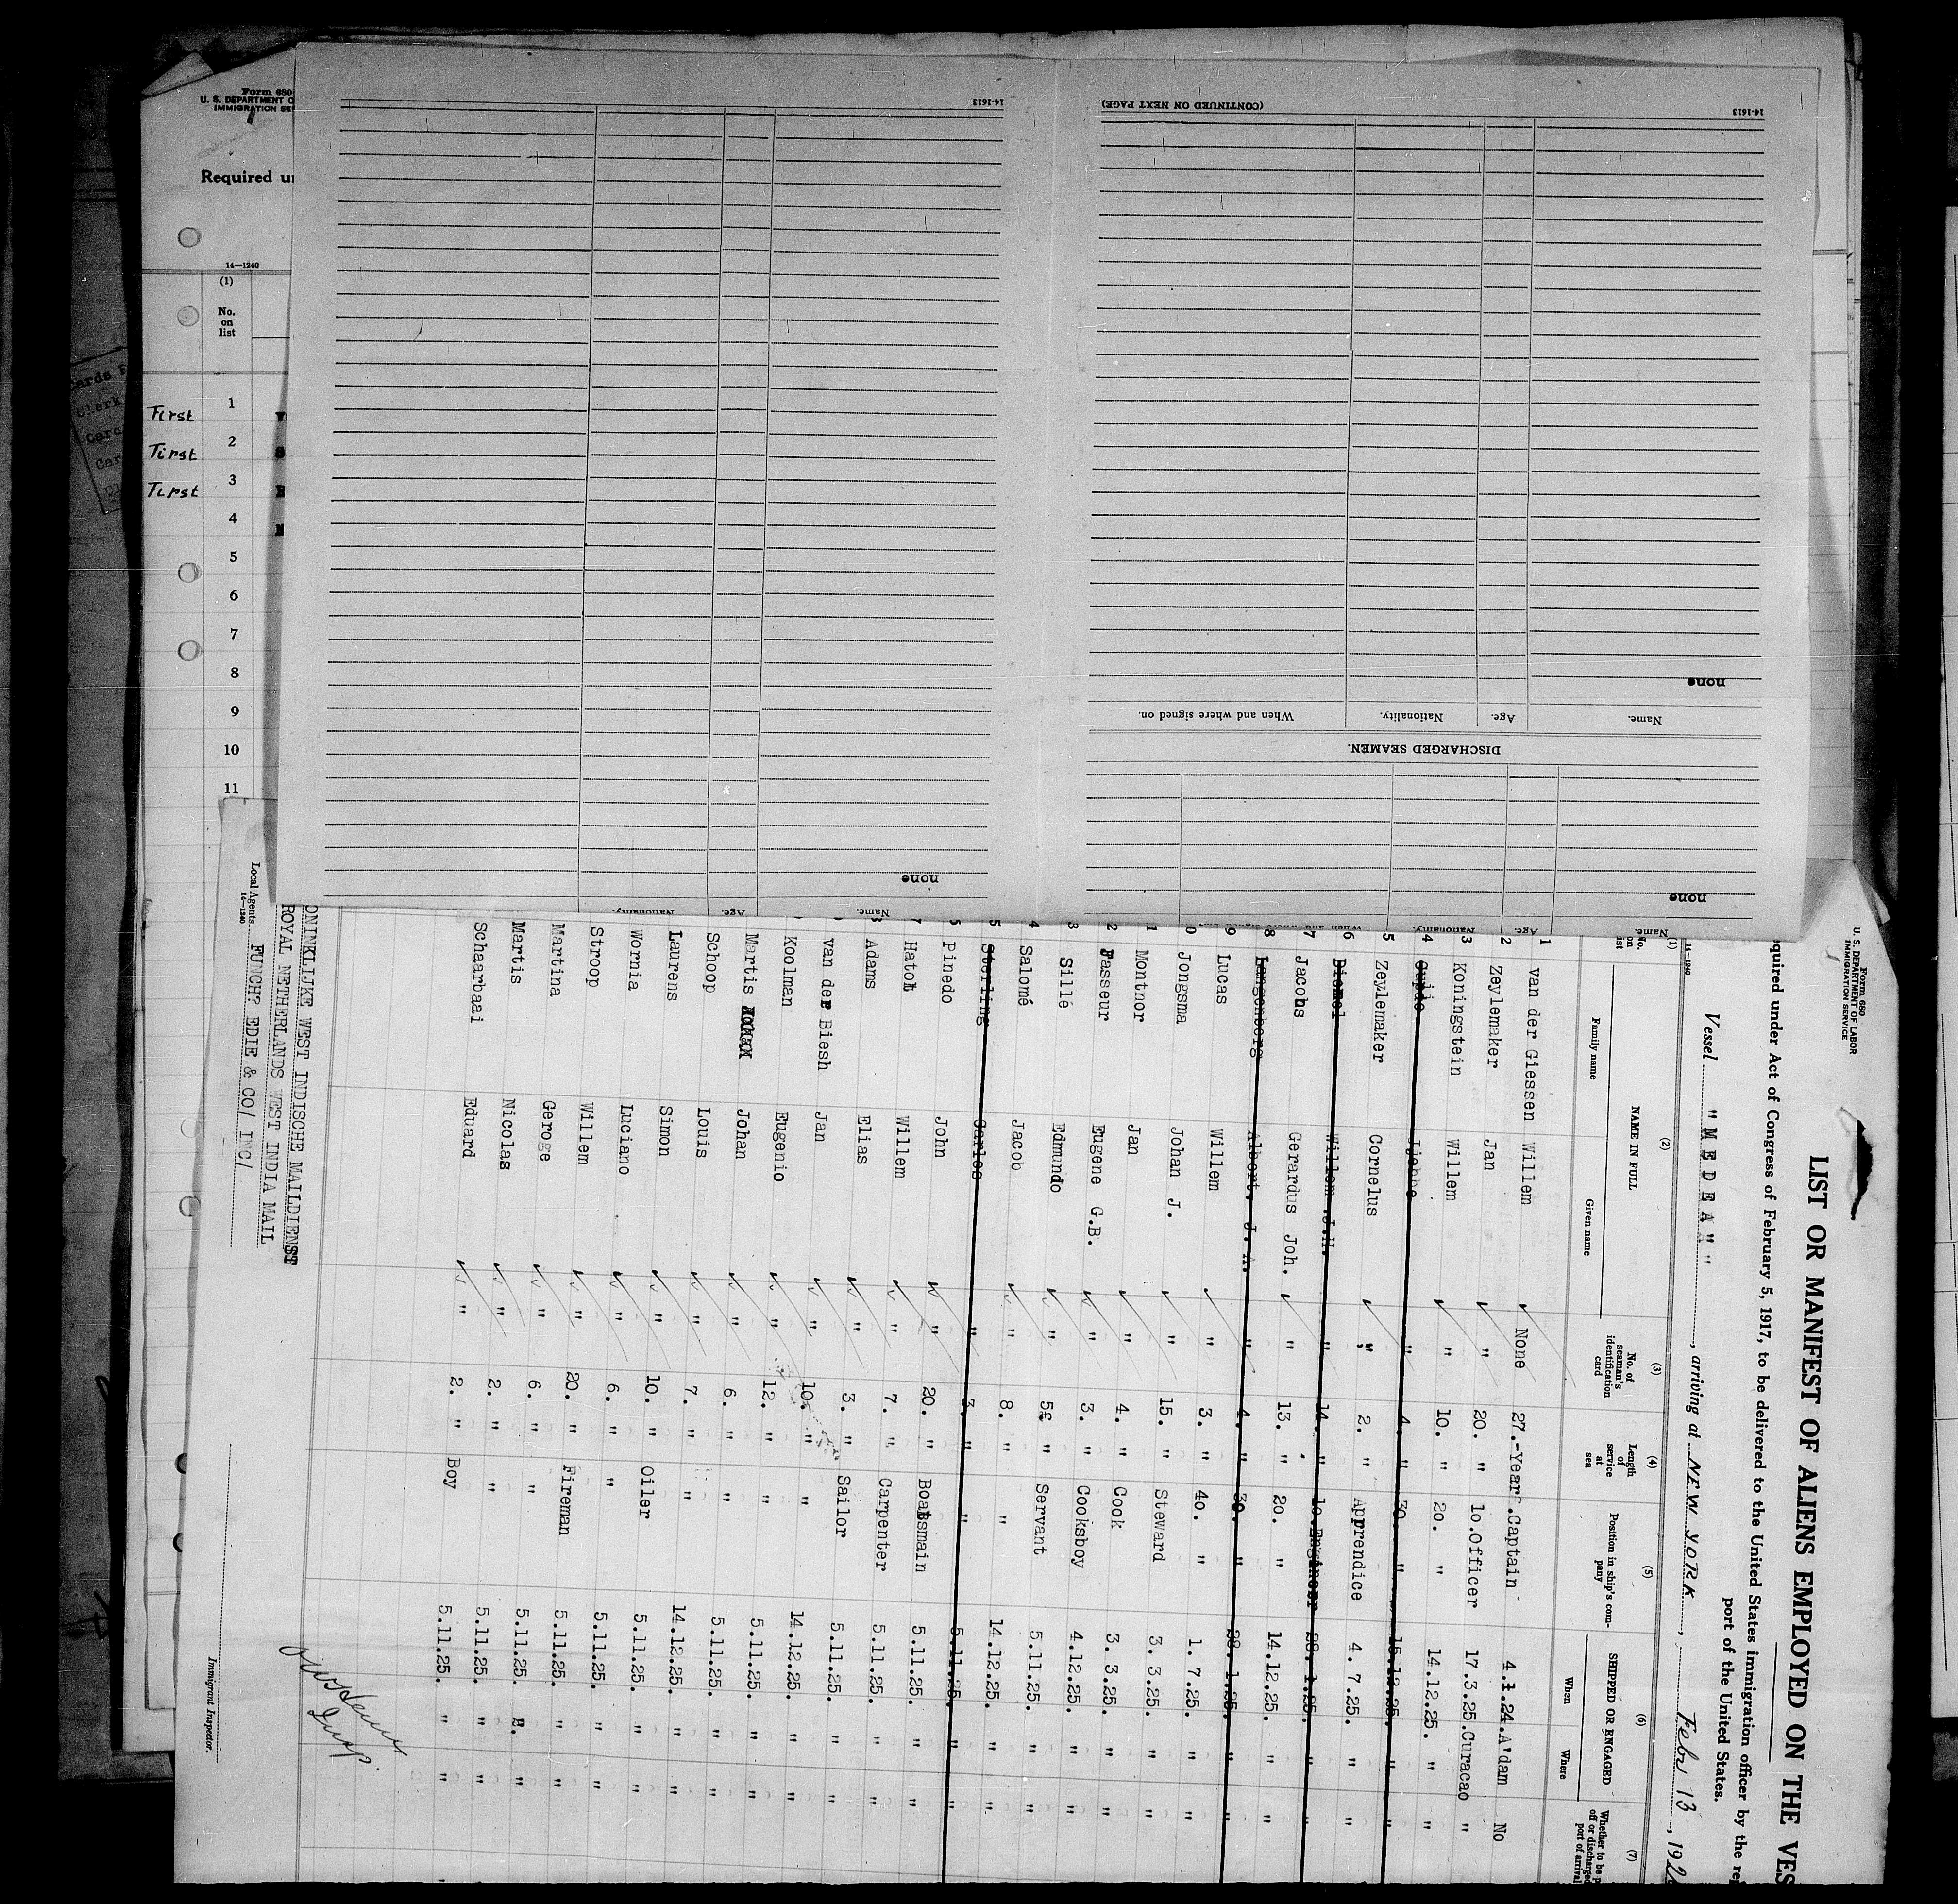 Form 680
U. S. DEPARTMENT O
IMMIGRATION SE
Required u
14—1240
(1)
No.
on
list
First 1
First 2
First 3
4
5
6
7
8
9
10
11
14-1613
(CONTINUED ON NEXT PAGE)
14-1613
none
Name. Age. Nationality. When and where signed on.
DISCHARGED SEAMEN.
none
none
Name. Age. Nationality.
Name. Age. Nationality.
Form 680
U. S. DEPARTMENT OF LABOR
IMMIGRATION SERVICE
LIST OR MANIFEST OF ALIENS EMPLOYED ON THE VES
quired under Act of Congress of February 5, 1917, to be delivered to the United States immigration officer by the re
port of the United States.
Vessel "MEDEA" , arriving at NEW YORK , Feb 13 , 192
14—1240
(1) (2) (3) (4) (5) (6) (7)
No. on list NAME IN FULL No. of seaman's identification card Length of service at sea Position in ship's company SHIPPED OR ENGAGED Whether to be off or discharged port of arrival
Family name Given name When Where
1 van der Giessen Willem None 27.-Year. Captain 4.1.24. A'dam No
2 Zeylemaker Jan " 20. " 1o.Officer 17.3.25. Curacao "
3 Koningstein Willem " 10. " 20. " 14.12.25. " "
4 " 4. " 30. " 15.12.25. " "
5 Zeylemaker Cornelus " 2. " Apprendice 4. 7.25. " "
6 Willem J.H. " 14. " 1o.Enginer 28. 1.25. " "
7 Jacobs Gerardus Joh. " 13. " 20. " 14.12.25. " "
8 Langenberg Albert. J. A. " 4. " 30. " 28. 1.25. " "
9 Lucas Willem " 3. " 40. " 1. 7.25. " "
0 Jongsma Johan J. " 15. " Steward 3. 3.25. " "
1 Montnor Jan " 4. " Cook 3. 3.25. " "
2 Passeur Eugene G.B. " 3. " Cooksboy 4.12.25. " "
3 Sillé Edmundo " 5 " Servant 5.11.25. " "
4 Salomé Jacob " 8. " " 14.12.25. " "
5 Sterling Carlos " 3. " " 5.11.25. " "
6 Pinedo John " 20. " Boatsmain 5.11.25. " "
7 Hatol Willem " 7. " Carpenter 5.11.25. " "
8 Adams Elias " 3. " Sailor 5.11.25. " "
van der Biesh Jan " 10. " " 14.12.25. " "
Koolman Eugenio " 12. " " 5.11.25. " "
Martis Johan " 6. " " 5.11.25. " "
Schoop Louis " 7. " " 14.12.25. " "
Laurens Simon " 10. " Oiler 5.11.25. " "
Wornia Luciano " 6. " " 5.11.25. " "
Stroop Willem " 20. " Fireman 5.11.25. " "
Martina Geroge " 6. " " 5.11.25. " "
Martis Nicolas " 2. " " 5.11.25. " "
Schaarbaai Eduard " 2. " Boy 5.11.25. " "
ONINKLIJKE WEST INDISCHE MAILDIENST
ROYAL NETHERLANDS WEST INDIA MAIL
Local Agents FUNCH? EDIE & CO/ INC/
14—1240
Immigrant Inspector.